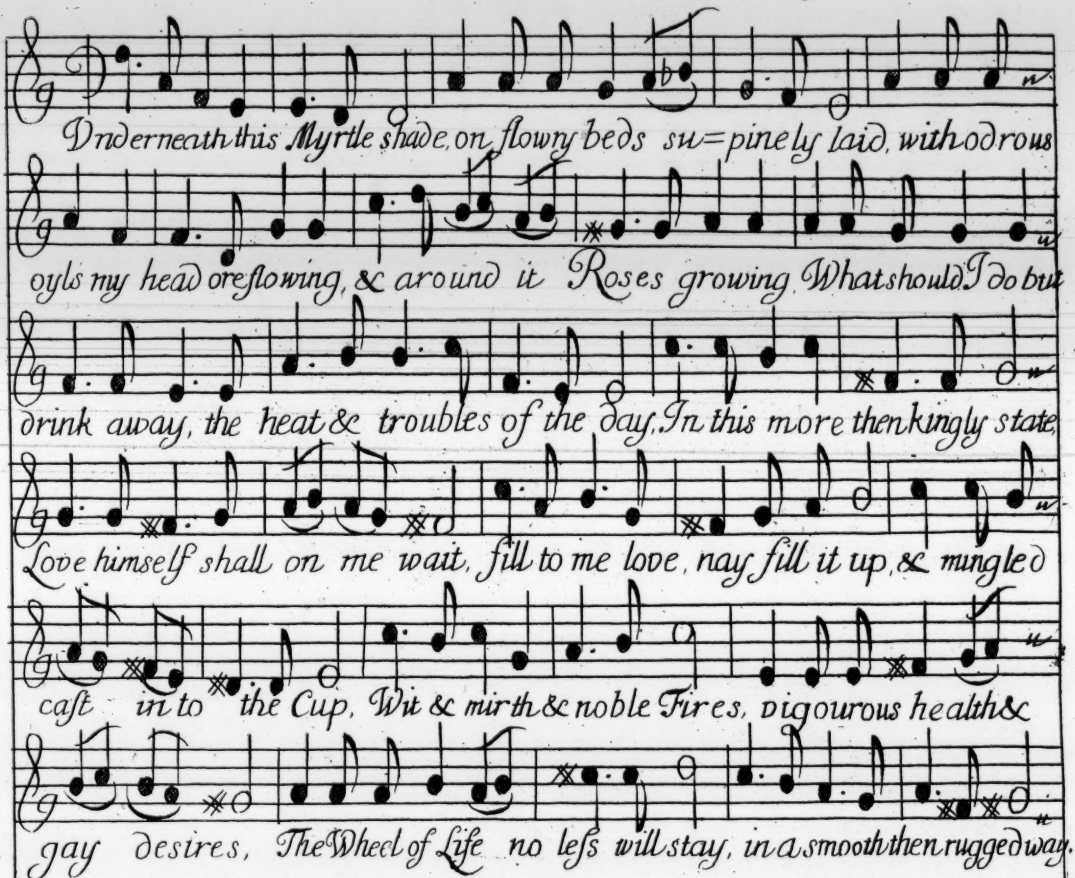 Vnderneath this Myrtle shade, on flowry beds su=pinely laid, with odrous
oyls my head oreflowing, & around it Roses growing. What should I do but
drink away, the heat & troubles of the day, In this more then kingly state,
Love himself shall on me wait, fill to me love, nay fill it up, & mingled
cast in to the Cup, Wit & mirth & noble Fires, vigourous health &
gay desires, The Wheel of Life no less will stay, in a smooth then rugged way.